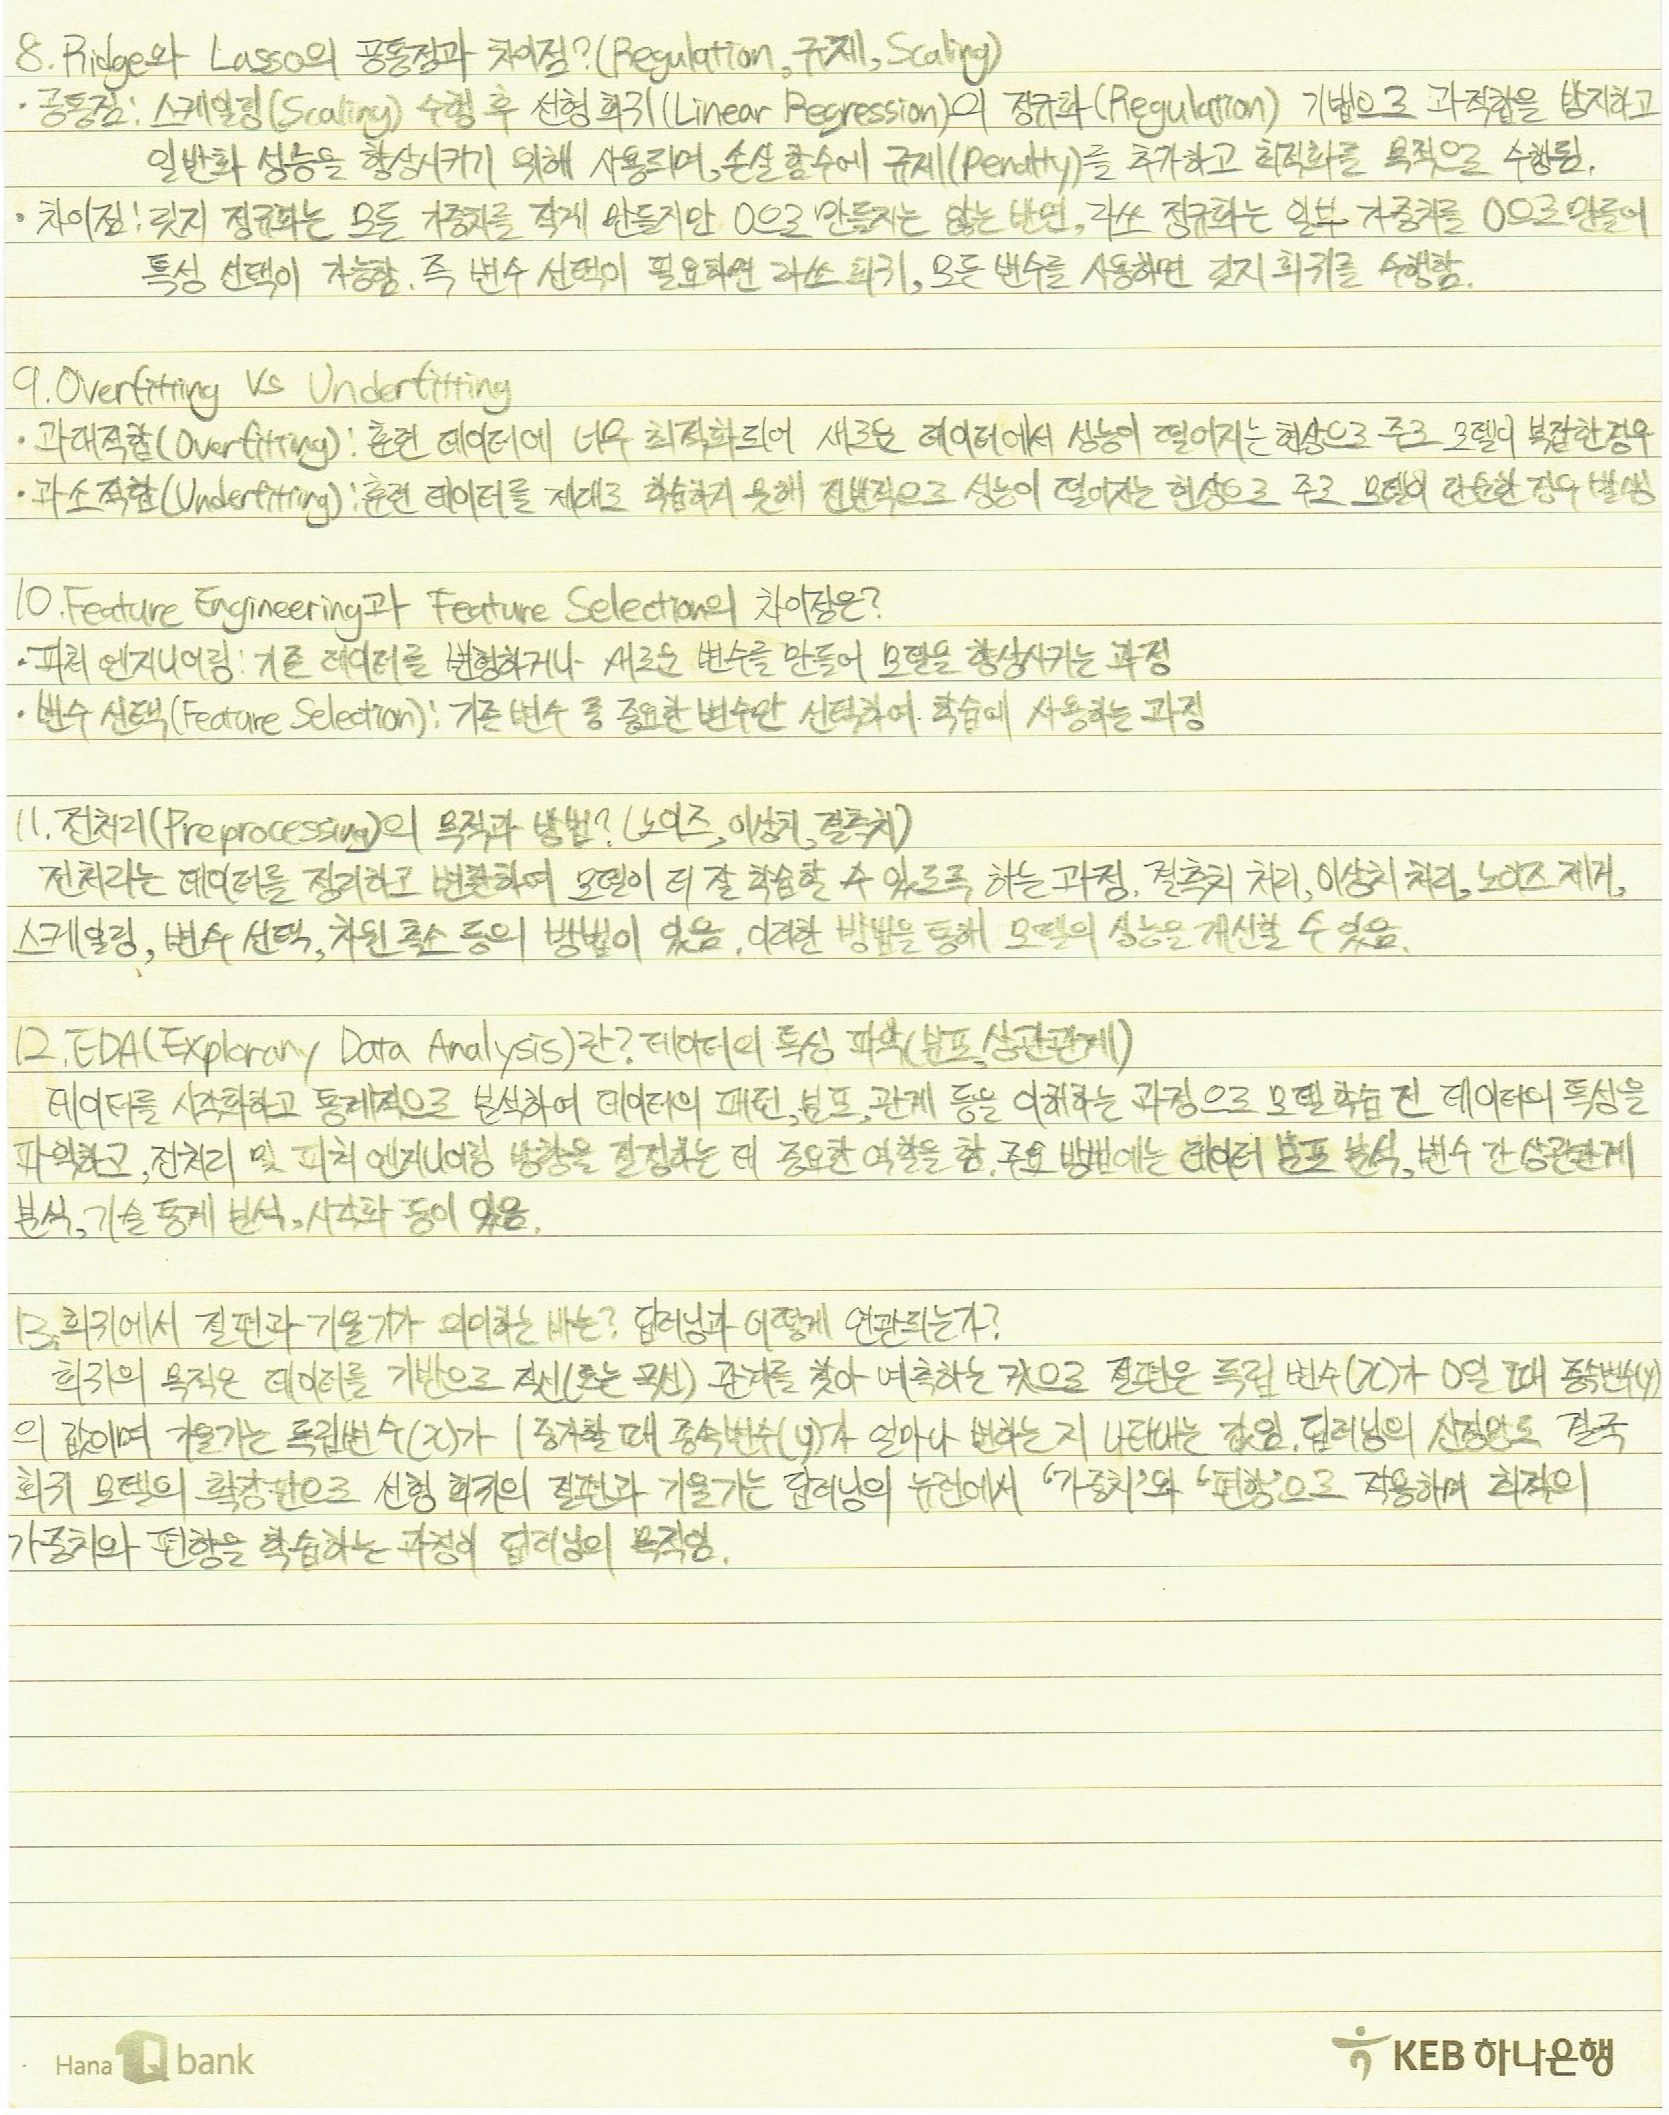 8. Ridge와 Lasso의 공통점과 차이점?(Regulation, 규제, Scaling)
· 공통점: 스케일링(Scaling) 수행 후 선형 회귀(Linear Regression)의 정규화(Regulation) 기법으로 과적합을 방지하고
일반화 성능을 향상시키기 위해 사용되며, 손실 함수에 규제(Penalty)를 추가하고 최적화를 목적으로 수행됨.
· 차이점: 릿지 정규화는 모든 가중치를 작게 만들지만 0으로 만들지는 않는 반면, 라쏘 정규화는 일부 가중치를 0으로 만들어
특성 선택이 가능함. 즉 변수 선택이 필요하면 라쏘 회귀, 모든 변수를 사용하면 릿지 회귀를 수행함.
9. Overfitting VS Underfitting
· 과대적합(Overfitting): 훈련 데이터에 너무 최적화되어 새로운 데이터에서 성능이 떨어지는 현상으로 주로 모델이 복잡한 경우
· 과소적합(Underfitting): 훈련 데이터를 제대로 학습하지 못해 전반적으로 성능이 떨어지는 현상으로 주로 모델이 단순한 경우 발생
10. Feature Engineering과 Feature Selection의 차이점은?
· 피처 엔지니어링: 기존 데이터를 변형하거나 새로운 변수를 만들어 모델을 향상시키는 과정
· 변수 선택(Feature Selection): 기존 변수 중 중요한 변수만 선택하여 학습에 사용하는 과정
11. 전처리(Preprocessing)의 목적과 방법? (노이즈, 이상치, 결측치)
전처리는 데이터를 정리하고 변환하여 모델이 더 잘 학습할 수 있도록 하는 과정. 결측치 처리, 이상치 처리, 노이즈 제거,
스케일링, 변수 선택, 차원 축소 등의 방법이 있음. 이러한 방법을 통해 모델의 성능을 개선할 수 있음.
12. EDA(Explorary Data Analysis)란? 데이터의 특성 파악(분포, 상관관계)
데이터를 시각화하고 통계적으로 분석하여 데이터의 패턴, 분포, 관계 등을 이해하는 과정으로 모델 학습 전 데이터의 특성을
파악하고, 전처리 및 피처 엔지니어링 방향을 결정하는 데 중요한 역할을 함. 주요 방법에는 데이터 분포 분석, 변수 간 상관관계
분석, 기술 통계 분석, 시각화 등이 있음.
13. 회귀에서 절편과 기울기가 의미하는 바는? 딥러닝과 어떻게 연관되는가?
회귀의 목적은 데이터를 기반으로 직선(또는 곡선) 관계를 찾아 예측하는 것으로 절편은 독립 변수(x)가 0일 때 종속변수(y)
의 값이며 기울기는 독립변수(x)가 1 증가할 때 종속변수(y)가 얼마나 변하는 지 나타내는 값임. 딥러닝의 신경망도 결국
회귀 모델의 확장판으로 선형 회귀의 절편과 기울기는 딥러닝의 뉴런에서 '가중치'와 '편향'으로 작용하며 최적의
가중치와 편향을 학습하는 과정이 딥러닝의 목적임.
Hana 1Q bank
KEB 하나은행